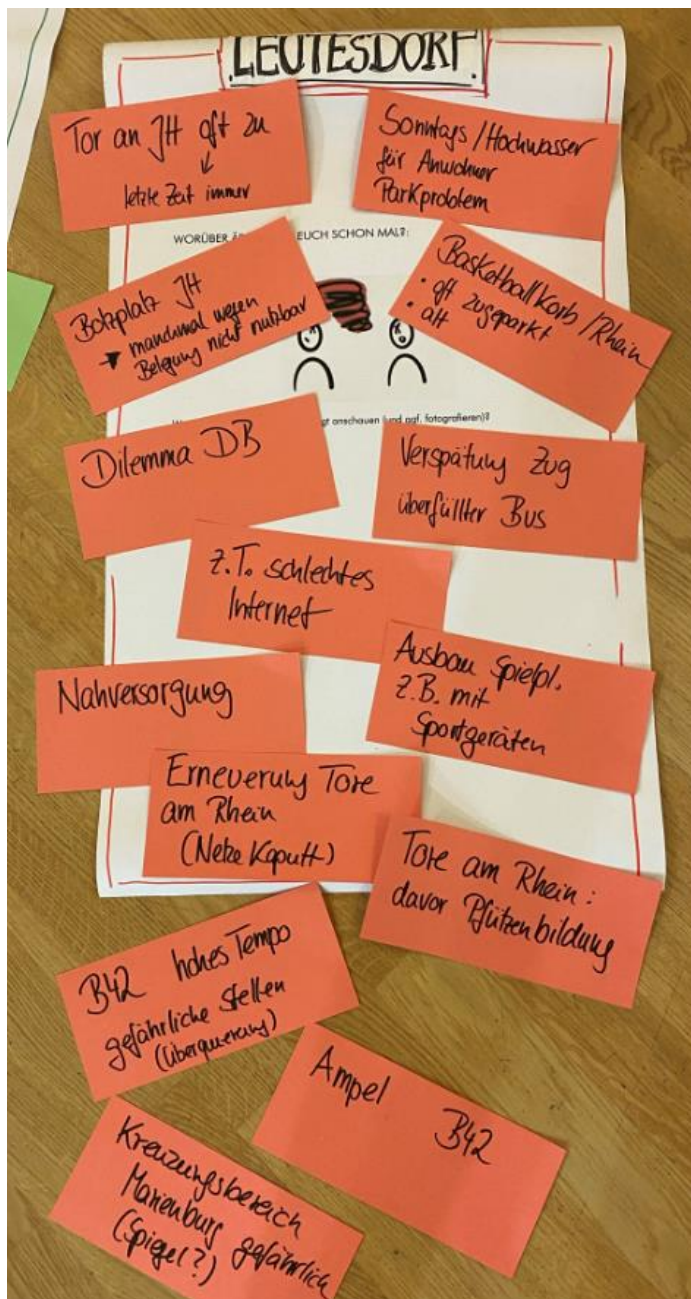 LEUTESDORF
Tor an JH oft zu
↓
letzte Zeit immer
Sonntags / Hochwasser
für Anwohner
Parkproblem
WORÜBER
EUCH SCHON MAL?:
Bolzplatz JH
→ manchmal wegen
Belegung nicht nutzbar
Basketballkorb / Rhein
• oft zugeparkt
• alt
anschauen (und ggf. fotografieren)?
Dilemma DB
Verspätung Zug
überfüllter Bus
z.T. schlechtes
Internet
Ausbau Spielpl.
z.B. mit
Sportgeräten
Nahversorgung
Erneuerung Tore
am Rhein
(Netze Kaputt)
Tore am Rhein:
davor Pfützenbildung
B42 hohes Tempo
gefährliche Stellen
(Überquerung)
Ampel B42
Kreuzungsbereich
Marienburg gefährlich
(Spiegel?)